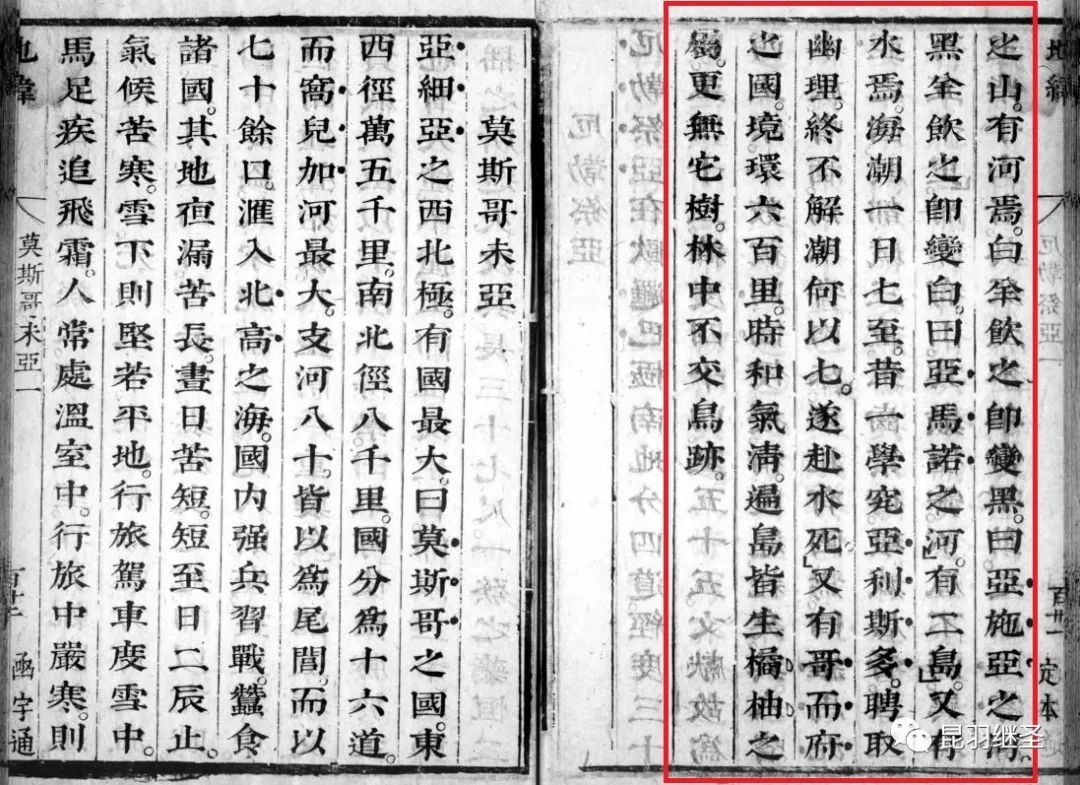 地緯
定本
之山。有河焉。白羊飲之卽變黑。曰亞施亞之河
黑羊飲之卽變白。曰亞馬諾之河。有二島。又有
水焉。海潮一日七至。昔一學究亞利斯多。聘取
幽理。終不解潮何以七。遂赴水死。又有哥而府
之國。境環六百里。時和氣淸。遍島皆生橘柚之
屬。更無它樹。林中不交鳥跡。
莫斯哥未亞
亞細亞之西北極。有國最大。曰莫斯哥之國。東
西徑萬五千里。南北徑八千里。國分爲十六道。
而窩兒加河最大。支河八十。皆以爲尾閭。而以
七十餘口。滙入北高之海。國內强兵習戰。蠶食
諸國。其地夜漏苦長。晝日苦短。短至日二辰止。
氣候苦寒。雪下則堅若平地。行旅駕車度雪中。
馬足疾追飛霜。人常處溫室中。行旅中嚴寒。則
地緯 莫斯哥未亞一 函宇通
昆羽继圣